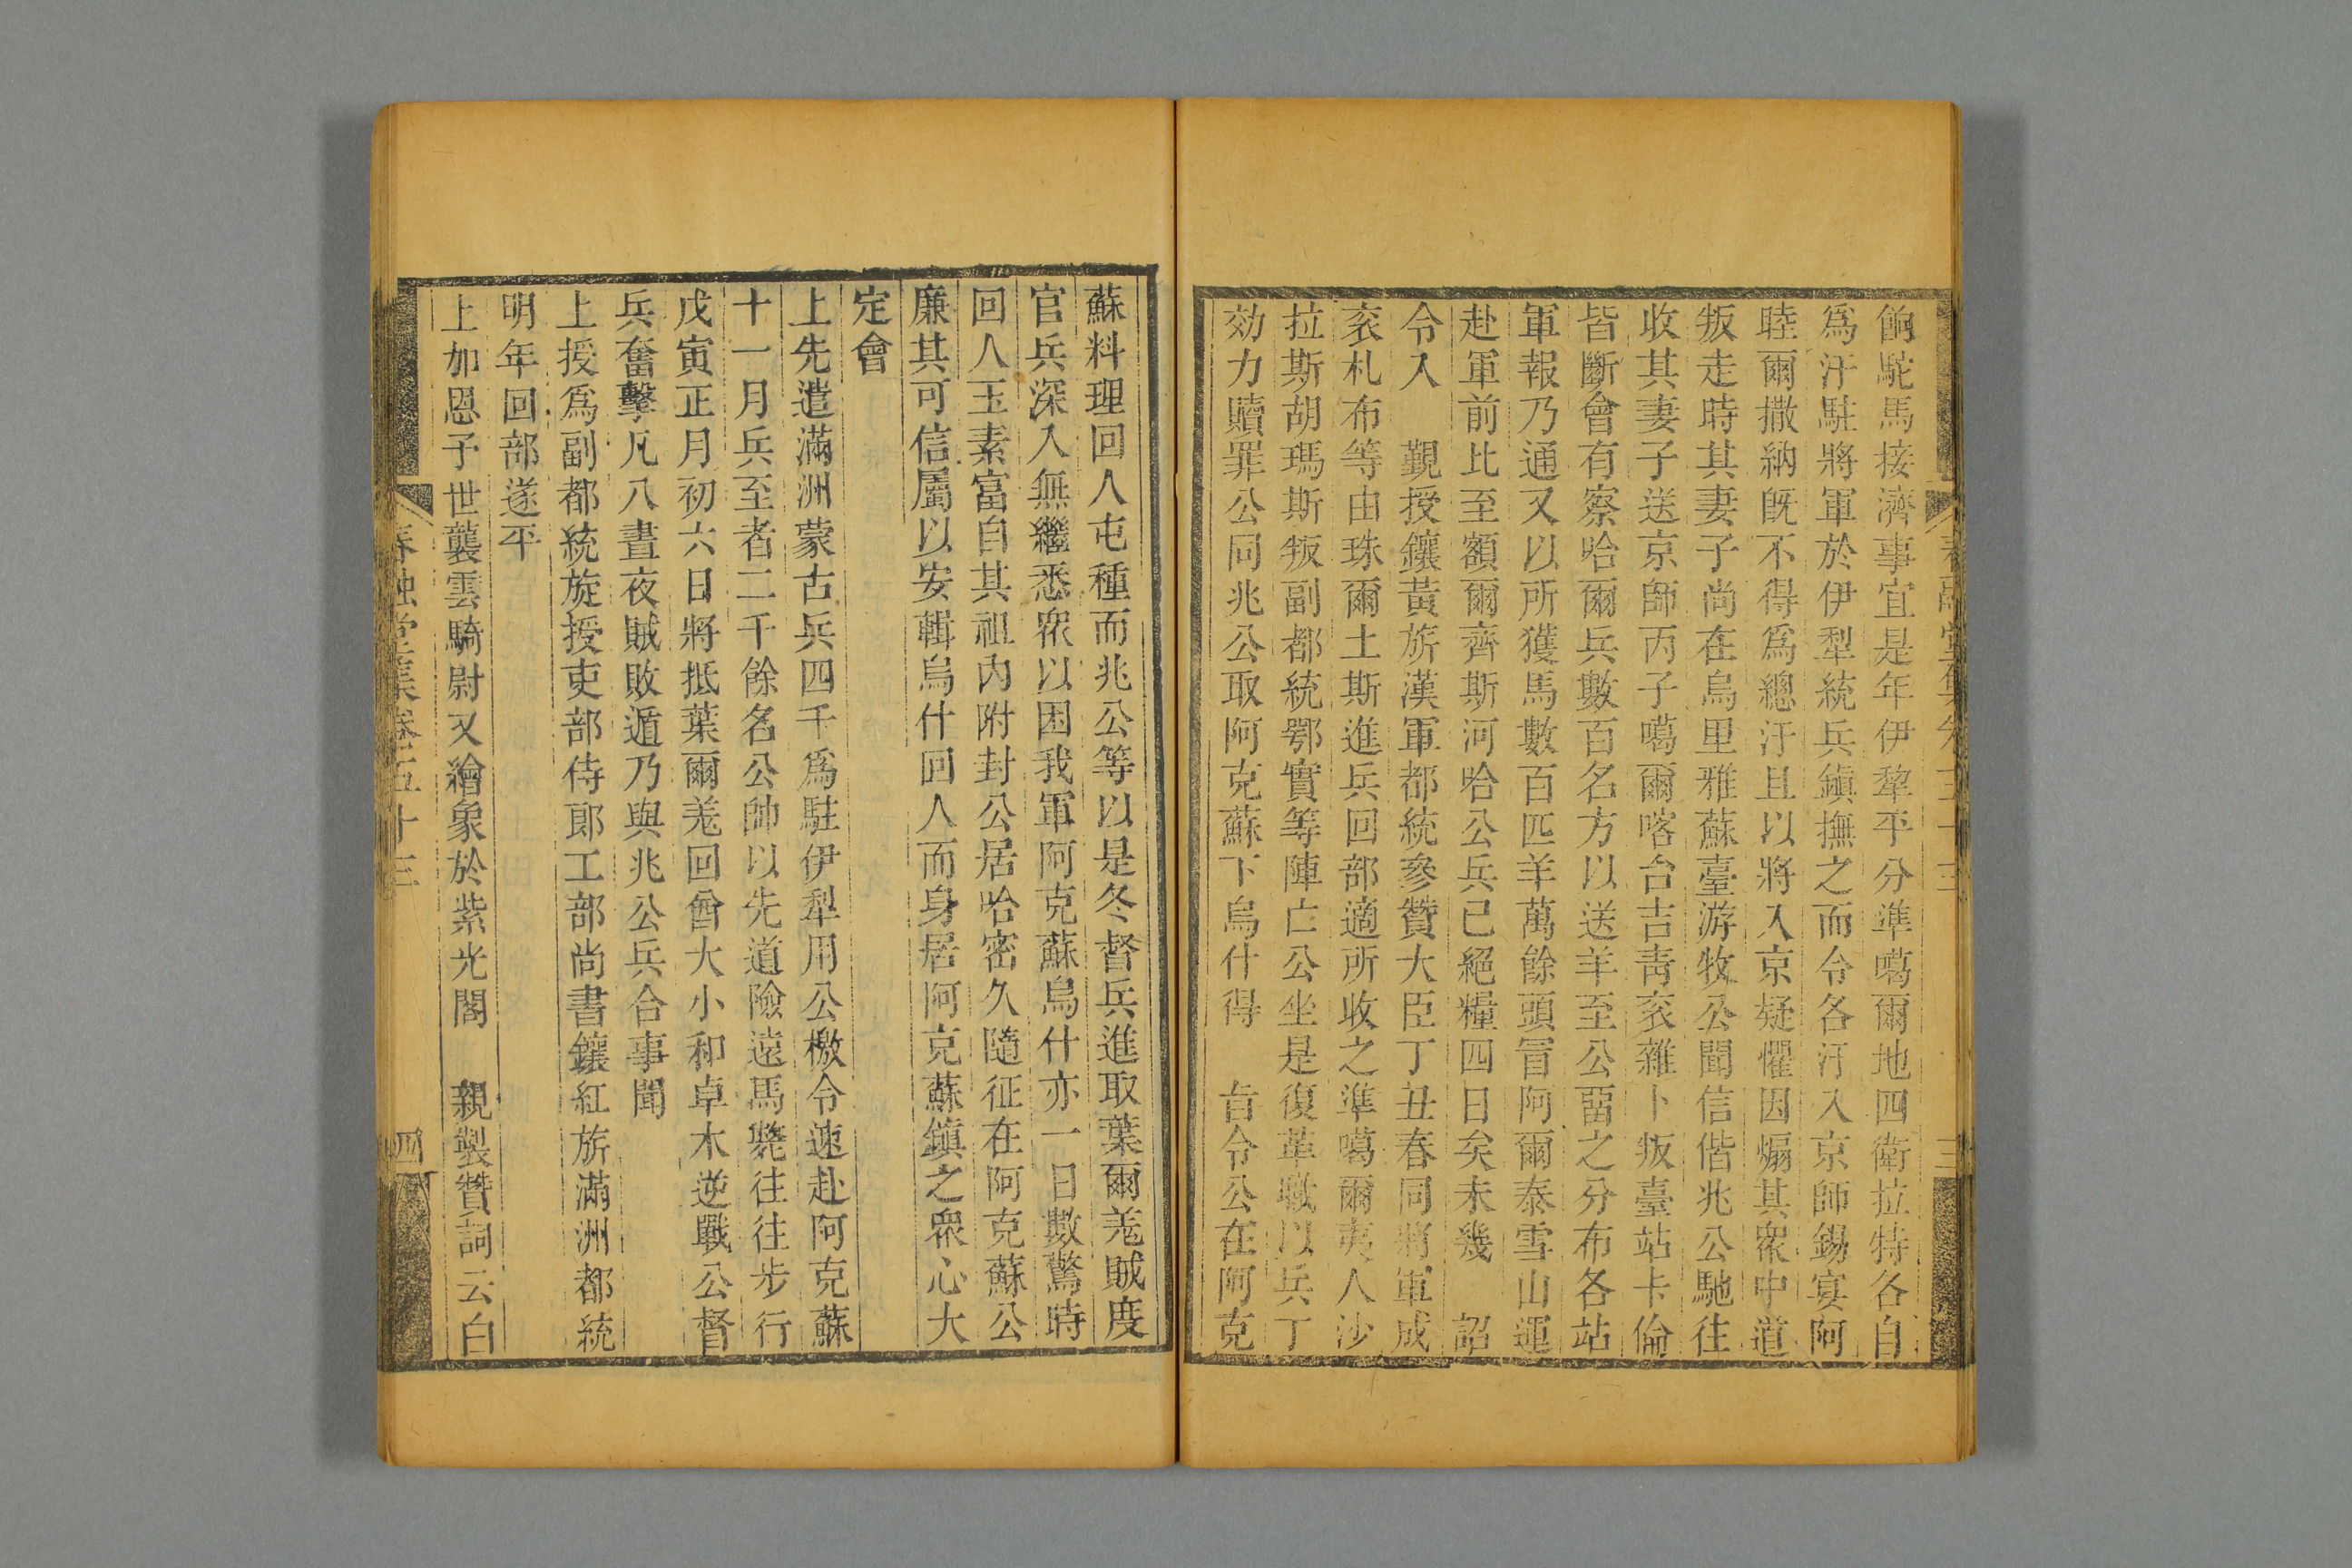 餉駝馬接濟事宜是年伊犂平分準噶爾地四衛拉特各自
爲汗駐將軍於伊犁統兵鎭撫之而令各汗入京師錫宴阿
睦爾撒納旣不得爲總汗且以將入京疑懼因煽其衆中道
叛走時其妻子尚在烏里雅蘇臺游牧公聞信偕兆公馳往
收其妻子送京師丙子噶爾喀台吉靑衮雜卜叛臺站卡倫
皆斷會有察哈爾兵數百名方以送羊至公畱之分布各站
軍報乃通又以所獲馬數百匹羊萬餘頭冒阿爾泰雪山運
赴軍前比至額爾齊斯河哈公兵已絕糧四日矣未幾　詔
令入　覲授鑲黃旂漢軍都統參贊大臣丁丑春同將軍成
衮札布等由珠爾土斯進兵回部適所收之準噶爾夷人沙
拉斯胡瑪斯叛副都統鄂實等陣亡公坐是復革職以兵丁
効力贖罪公同兆公取阿克蘇下烏什得　旨令公在阿克
蘇料理回人屯種而兆公等以是冬督兵進取葉爾羌賊度
官兵深入無繼悉衆以困我軍阿克蘇烏什亦一日數驚時
回人玉素富自其祖內附封公居哈密久隨征在阿克蘇公
廉其可信屬以安輯烏什回人而身居阿克蘇鎭之衆心大
定會
上先遣滿洲蒙古兵四千爲駐伊犁用公檄令速赴阿克蘇
十一月兵至者二千餘名公帥以先道險遠馬斃往往步行
戊寅正月初六日將抵葉爾羌回酋大小和卓木逆戰公督
兵奮擊凡八晝夜賊敗遁乃與兆公兵合事聞
上授爲副都統旋授吏部侍郎工部尚書鑲紅旂滿洲都統
明年回部遂平
上加恩予世襲雲騎尉又繪象於紫光閣　親製贊詞云白
春融堂集卷五十三
四